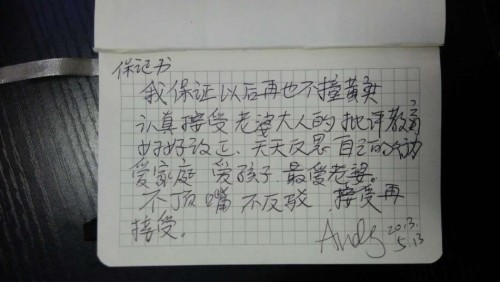 保证书
我保证以后再也不撞黄实
认真接受老婆大人的批评教育
好改正、天天反思自己的行动
爱家庭 爱孩子 最爱老婆。
不顶嘴 不反驳 接受再
接受。
Andy 2013.
5.13